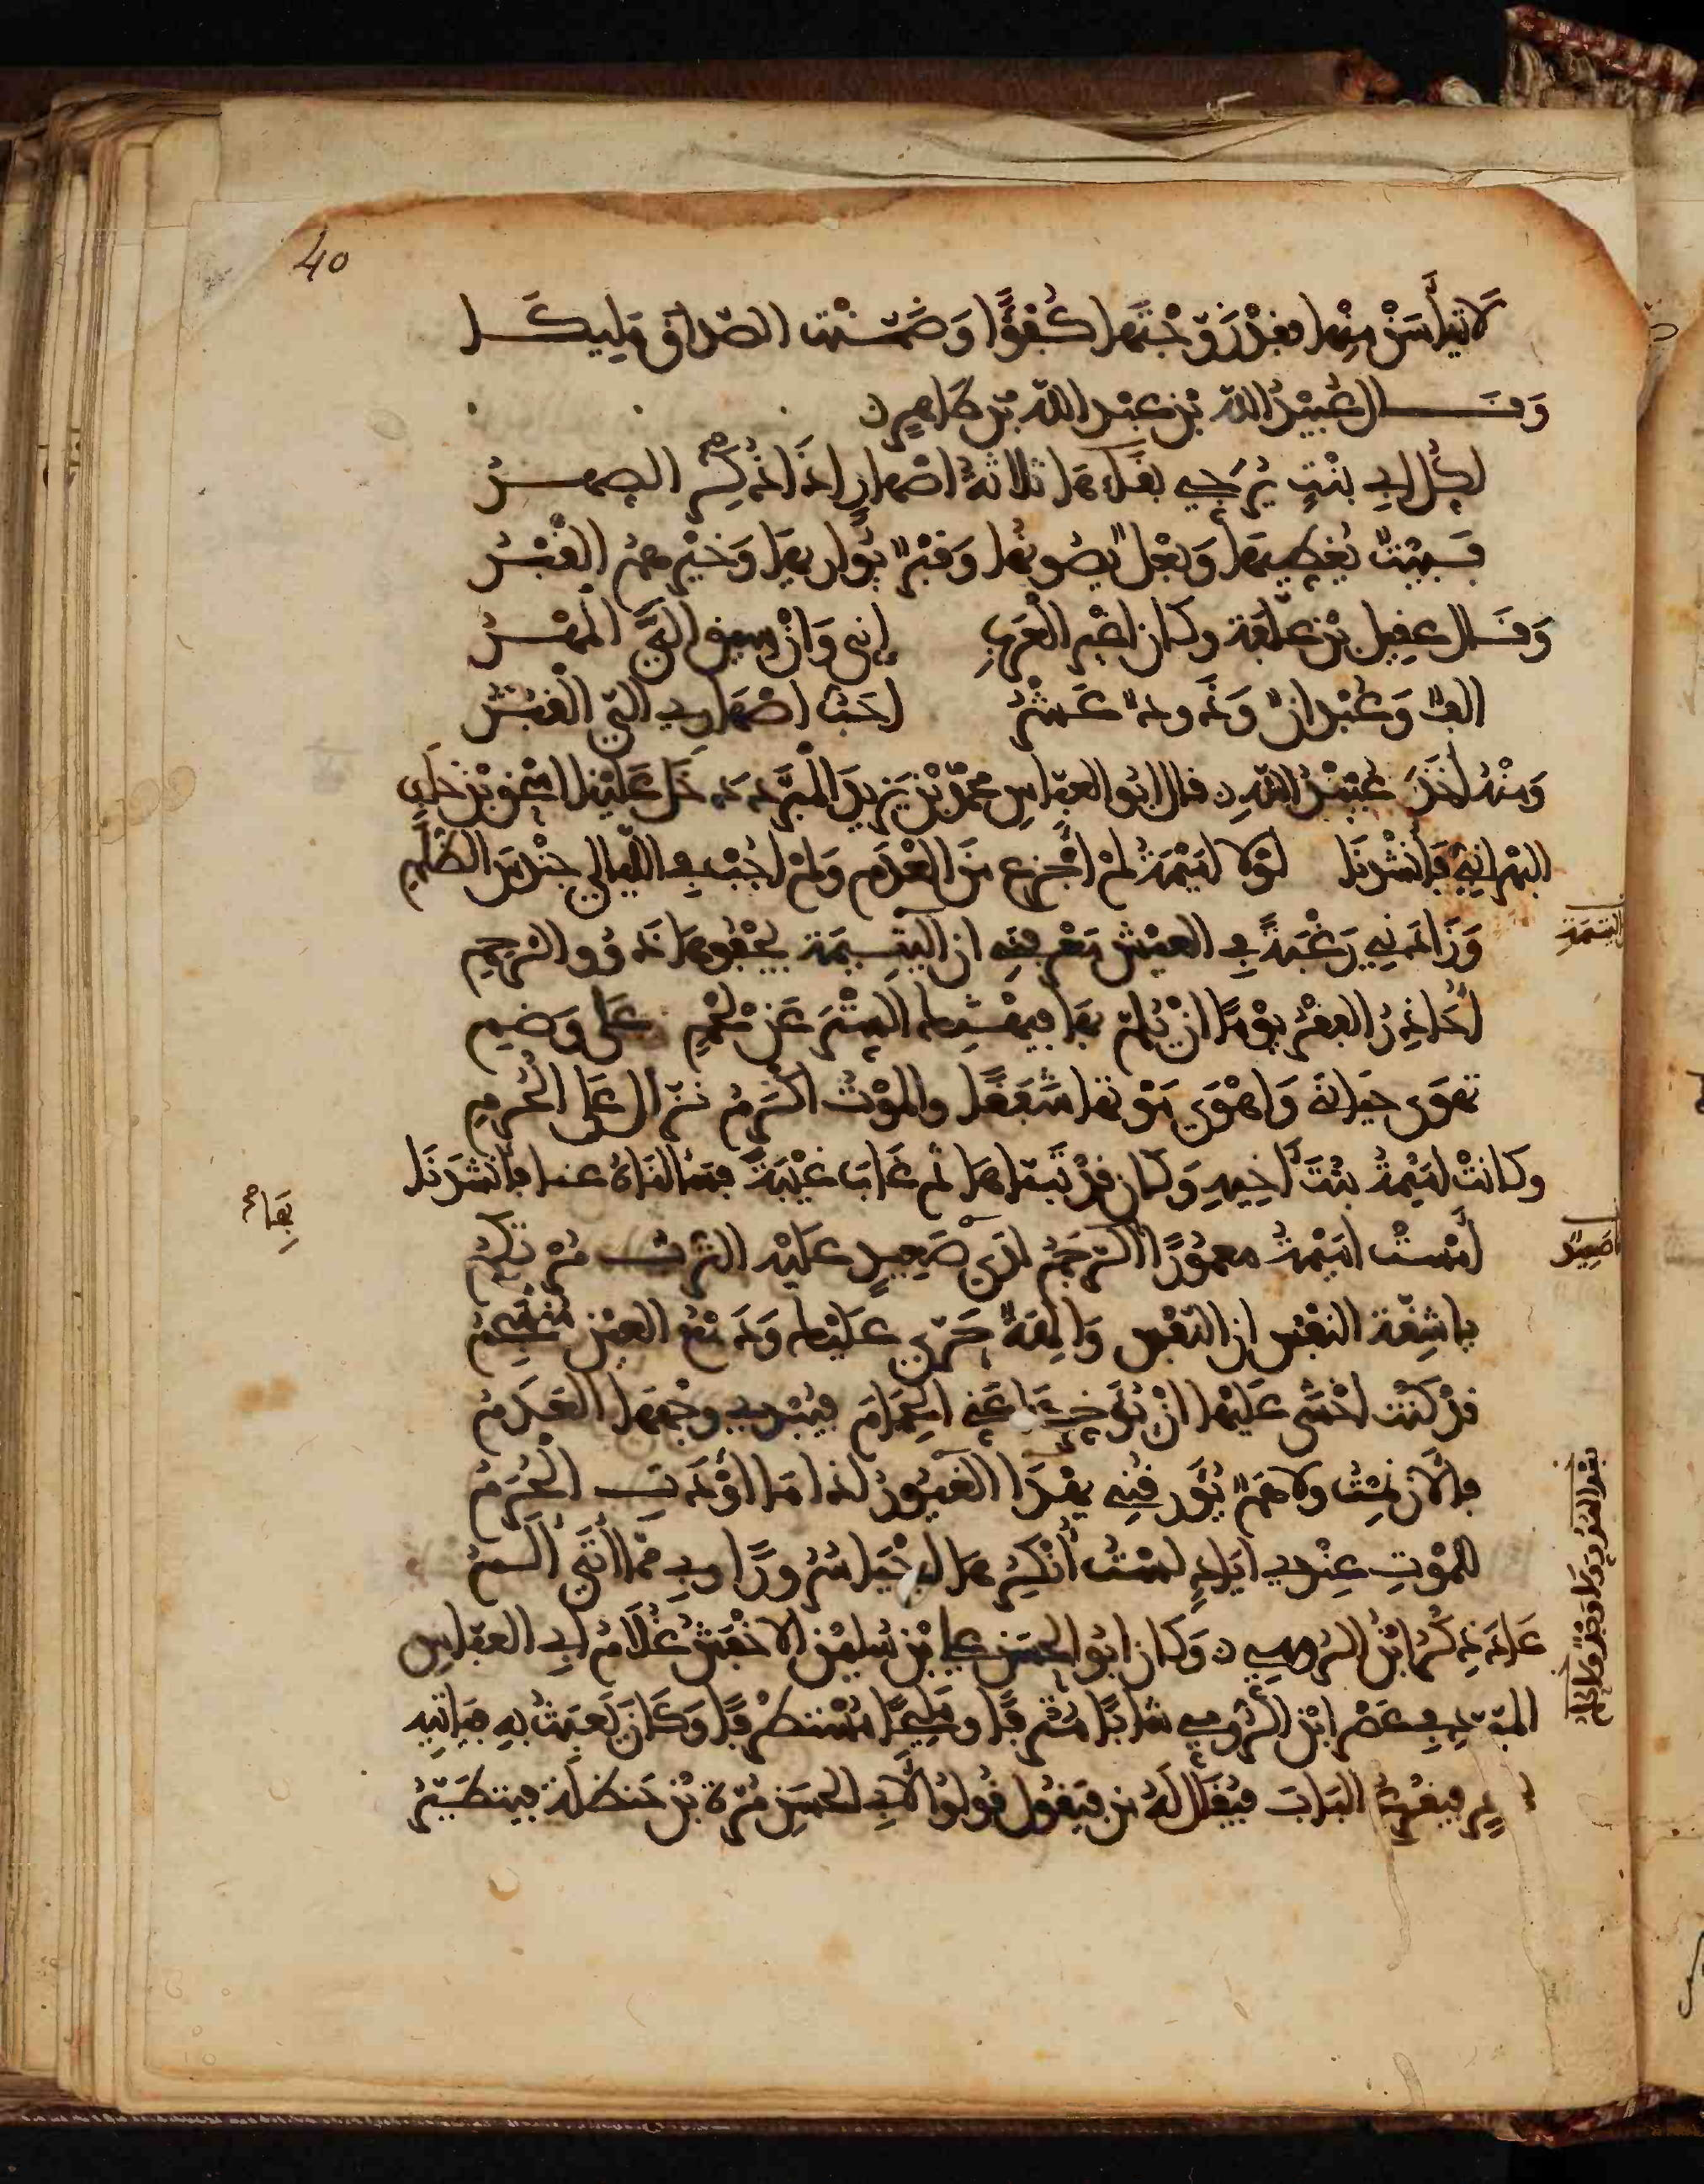 40
لَا تَيْأَسَنْ مِنْهَا فَقَدْ زَوَّجْتَهَا كُفُؤًا وَضَمَّنْتَ الصَّدَاقَ مَلِيكَا
وَقَالَ عُبَيْدُ اللّٰه بْن عَبْد اللّٰه بْن طَاهِرٍ
لِكُلِّ أَبِي بِنْتٍ يُرَجِّي بَقَاءَهَا ثَلَاثَةُ أَصْهَارٍ إِذَا ذُكِرَ الصِّهْرُ
فَبَيْتٌ يُغَطِّيهَا وَبَعْلٌ يَصُونُهَا وَقَبْرٌ يُوَارِيهَا وَخَيْرُهُمُ الْقَبْرُ
وَقَالَ عقيل بْن عُلَّفَة وكان أغير العَرَبِ إِنِّي وَإِنْ سِيقَ إِلَيَّ الْمَهْرُ
أَلْفٌ وَعُبْدَانٌ وَذَوْدٌ عَشْرُ أَحَبُّ أَصْهَارِي إِلَيَّ الْقَبْرُ
وَمِنْهُ أَخَذَ عُبَيْدُ اللّٰهِ قال أبو العباسِ محمّدُ بْنُ يَزِيدَ الْمُبَرَّد دَخَلَ عَلَيْنَا إسحٰق بْنُ خَلَفٍ
البَهْرَانِيّ فَأَنْشَدَنَا لَوْلَا أُمَيْمَةُ لَمْ أَجْزَعْ مِنَ الْعَدَمِ وَلَمْ أَجُبْ فِي اللَّيَالِي حِنْدِسَ الظُّلَمِ
وَزَادَنِي رَغْبَةً فِي الْعَيْشِ مَعْرِفَتِي أن الْيَتِيمَة يَجْفُوهَا ذَوُو الرَّحِمِ
الْيَتِيمَةِ
أُحَاذِرُ الْفَقْرَ يَوْمًا أَنْ يُلِمَّ بِهَا فَيَهْتِكَ السِّتْرَ عَنْ لَحْمٍ عَلَى وَضَمِ
تَهْوَى حَيَاتِي وَأَهْوَى مَوْتَهَا شَفَقًا وَالْمَوْتُ أَكْرَمُ نَزَّالٍ عَلَى الْحُرَمِ
وكَانَتْ أُمَيْمَةُ بِنْتَ أُخِيهِ وَكَان قَدْ تَبَنَّاهَا ثُمَّ غَابَ غَيْبَةً فَسَأَلْنَاهُ عنها فأَنْشَدَنَا
أَمْسَتْ أُمَيْمَةُ مَعْمُورًا الرَّجَمُ لَدَى صَعِيدٍ عَلَيْهِ التُّرْبُ مُرْتَكِمُ
يَا شِقَّةَ النَّفْسِ إِنَّ النَّفْسَ وَالِهَةٌ حَرَّى عَلَيْكِ وَدَمْعُ الْعَيْنِ مُنْسَجِمُ
قَدْ كُنْتُ أَخْشَى عَلَيْهَا أَنْ يُؤَخِّرَهَا عَنِّي الْحِمَامُ فَيُبْدِي وَجْهَهَا الْعَدَمُ
فَالْآنَ نِمْتُ وَلَا هَمٌّ يُؤَرِّقُنِي يَهْدَا الْغَيُورُ إِذَا مَا أَوْدَتِ الْحُرَمُ
لِلْمَوْتِ عِنْدِي أَيَادٍ لَسْتُ أُنْكِرُهَا أَحْيَا سُرُورًا وَبِي مِمَّا أَتَى أَلَمُ
عَادَ ذِكْرُ ابْنُ الرُّومِيِّ وَكَان أبُو الحسَن علي بْن سُلَيْمٰن الأخْفَش غُلَامُ أبِي العبّاسِ
المبرّد فِي عَصْرِ ابْن الرُّومي شابًّا مُتْرَفًا ومَلِيحًا مُسْتَظْرَفًا وَكَان يَعْبَثُ بِهِ فَيَأتِيهِ
فيَقْرَعُ البَابَ فيُقَال لَهُ من فيَقُول قُولُوا لأبِي الحسَن مُرَّة بْن حَنظَلة فيتَطَيَّرُ